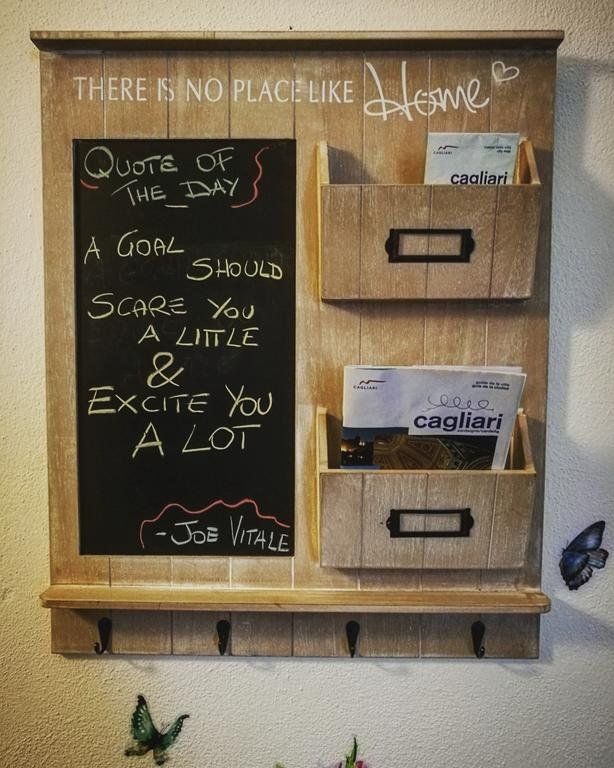 THERE IS NO PLACE LIKE Home
QUOTE OF
THE_DAY
A GOAL
SHOULD
SCARE YOU
A LITTLE
&
EXCITE YOU
A LOT
- JOE VITALE
CAGLIARI
cagliari
CAGLIARI
cagliari